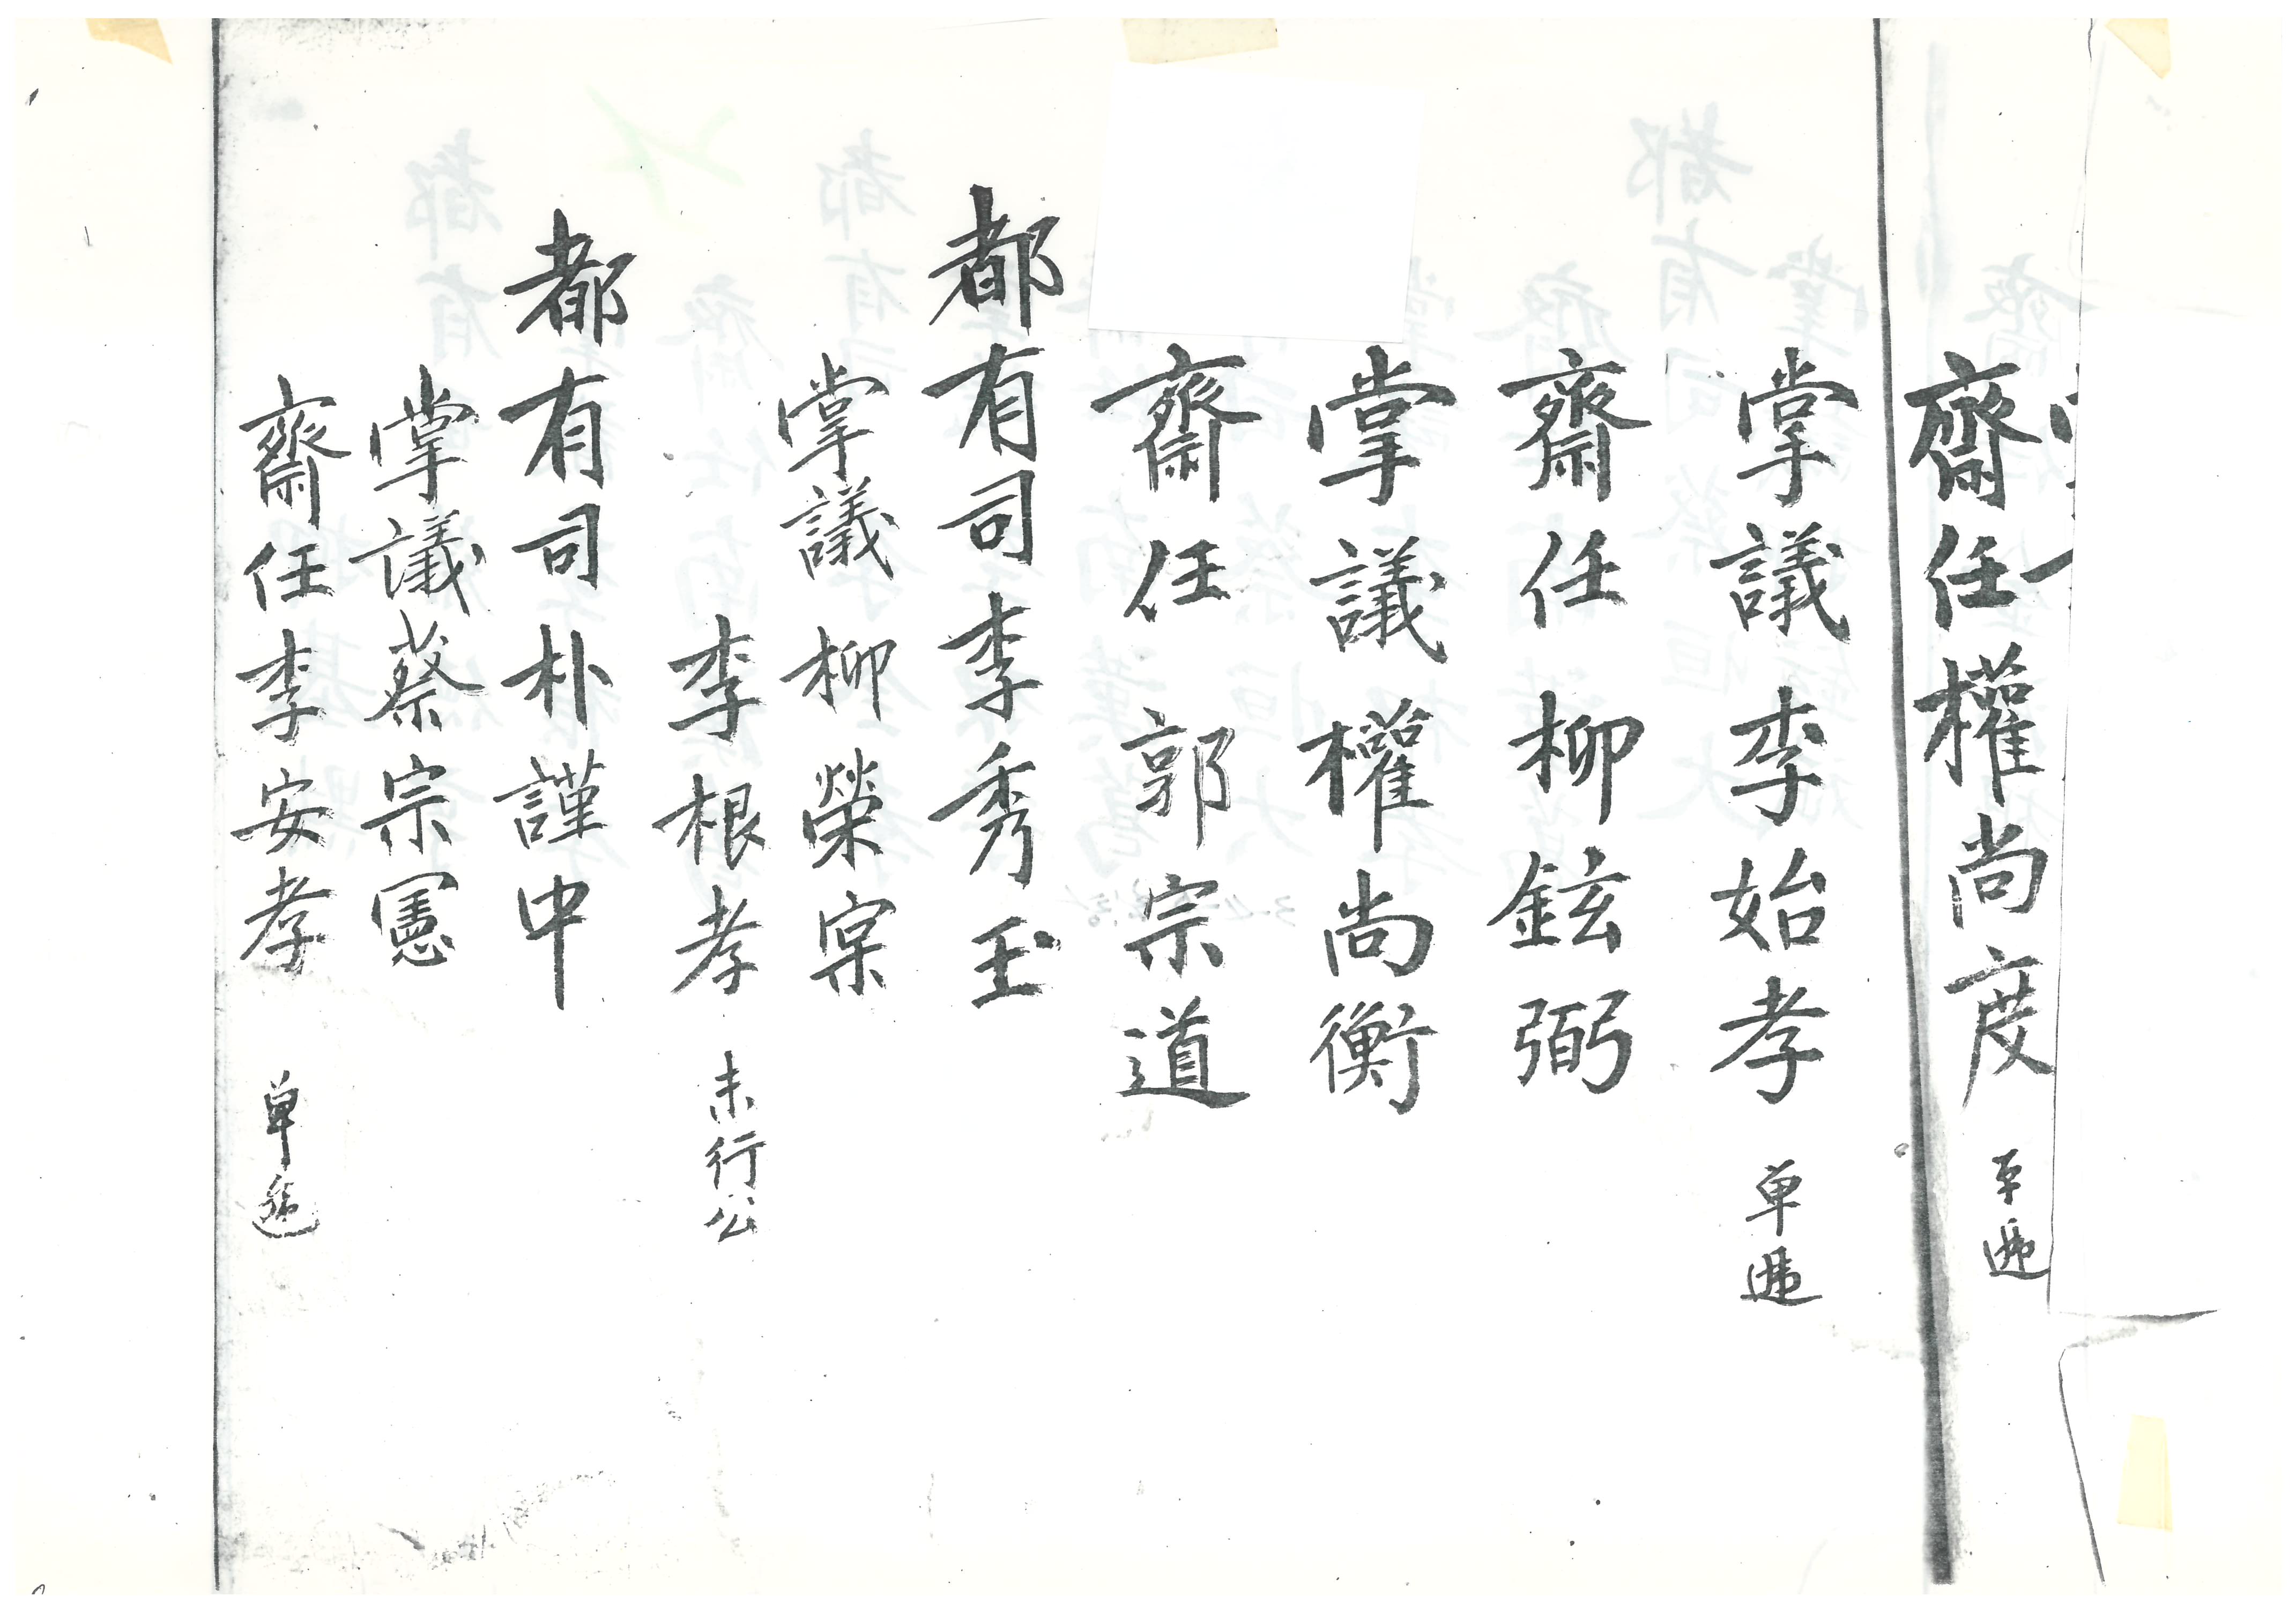 齋任權尚度 单遞
掌議李始孝 单遞
齋任柳鉉弼
掌議權尚衡
齋任郭宗道
都有司李秀玉
掌議柳榮宲
李根孝 未行公
都有司朴謹中
掌議蔡宗憲
齋任李安孝 单遞